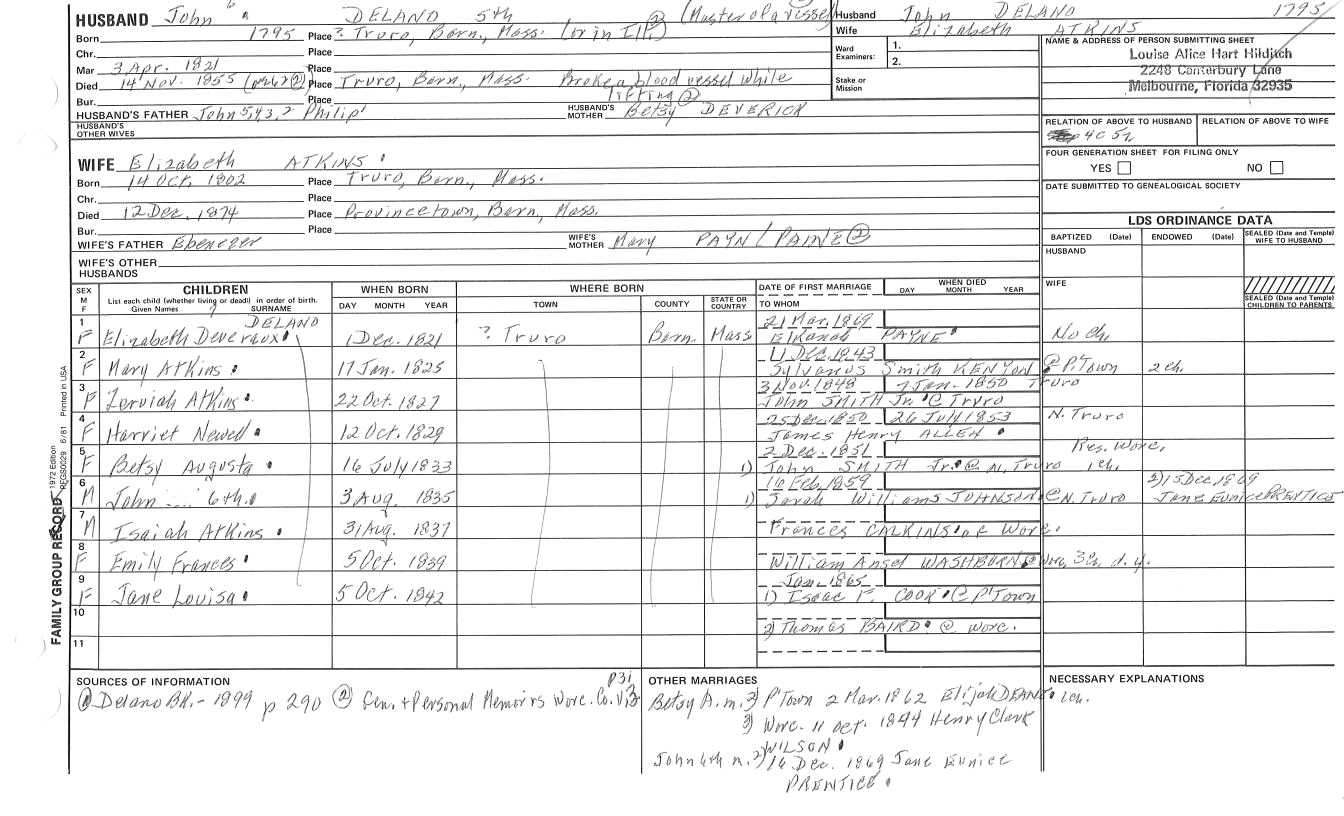 HUSBAND John 6 DELANO 5th (Master of a vissel) ②
Born 1795 Place ? Truro, Barn., Mass. (or in
Chr. Place
Mar 3 Apr. 1821 Place
Died 14 Nov. 1855 Place Truro, Barn, Mass. Broke a blood vessel while
lifting ②
Bur. Place
HUSBAND'S FATHER John 5,4,3,2 Philip 1 HUSBAND'S MOTHER Betsy DEVERICK
HUSBAND'S OTHER WIVES
Husband John DELANO 1795
Wife Elizabeth ATKINS
Ward Examiners: 1.
2.
Stake or Mission
NAME & ADDRESS OF PERSON SUBMITTING SHEET
Louise Alice Hart Hilditch
2248 Canterbury Lane
Melbourne, Florida 32935
RELATION OF ABOVE TO HUSBAND RELATION OF ABOVE TO WIFE
4C 5r
FOUR GENERATION SHEET FOR FILING ONLY
YES NO
DATE SUBMITTED TO GENEALOGICAL SOCIETY
WIFE Elizabeth ATKINS
Born 14 Oct. 1802 Place Truro, Barn., Mass.
Chr. Place
Died 12 Dec. 1874 Place Provincetown, Barn, Mass.
Bur. Place
WIFE'S FATHER Ebenezer WIFE'S MOTHER Mary PAYN / PAINE ②
WIFE'S OTHER HUSBANDS
LDS ORDINANCE DATA
BAPTIZED (Date) ENDOWED (Date) SEALED (Date and Temple) WIFE TO HUSBAND
HUSBAND
WIFE
SEALED (Date and Temple) CHILDREN TO PARENTS
SEX M F CHILDREN WHEN BORN WHERE BORN DATE OF FIRST MARRIAGE WHEN DIED
List each child (whether living or dead) in order of birth.
Given Names SURNAME DAY MONTH YEAR TOWN COUNTY STATE OR COUNTRY TO WHOM DAY MONTH YEAR
DELANO 21 Mar, 1869
1 F Elizabeth Deveraux 1 Dec. 1821 ? Truro Barn. Mass Elkanah PAYNE No ch,
11 Dec. 1843
2 F Mary Atkins 17 Jan. 1825 Sylvanus Smith KENYON @ P'Town 2 ch.
3 Nov. 1848 7 Jan. 1850 Truro
3 F Zerviah Atkins 22 Oct. 1827 John SMITH Jr. @ Truro
25 Dec. 1850 26 July 1853 N. Truro
4 F Harriet Newell 12 Oct. 1829 James Henry ALLEN Res. Worc,
2 Dec. 1851
5 F Betsy Augusta 16 July 1833 1) John SMITH Jr. @ N, Truro 1 ch.
16 Feb, 1859 2) 15 Dec, 1869
6 M John ... 6th 3 Aug. 1835 1) Sarah Williams JOHNSON @ N. Truro Jane Eunice PRENTICE
7 M Isaiah Atkins 31 Aug. 1837 Frances CALKINS of Worc.
8 F Emily Frances 5 Oct. 1839 William Ansel WASHBORN @ Worc, 3 ch. d. y.
Jan. 1865
9 F Jane Louisa 5 Oct. 1842 1) Isaac F. COOK @ P'Town
10 2) Thomas BAIRD @ Worc.
11
FAMILY GROUP RECORD 1972 Edition REGS0029 6/81 Printed in USA
SOURCES OF INFORMATION
① Delano BK. - 1899 p 290 ② Gen. + Personal Memoirs Worc. Co. V.3 p31
OTHER MARRIAGES
Betsy A. m. 2) P'Town 2 Mar. 1862 Elijah DEAN 1 ch.
3) Worc. 11 Oct. 1894 Henry Clark
WILSON
John 6th m. 2) 16 Dec. 1869 Jane Eunice
PRENTICE
NECESSARY EXPLANATIONS